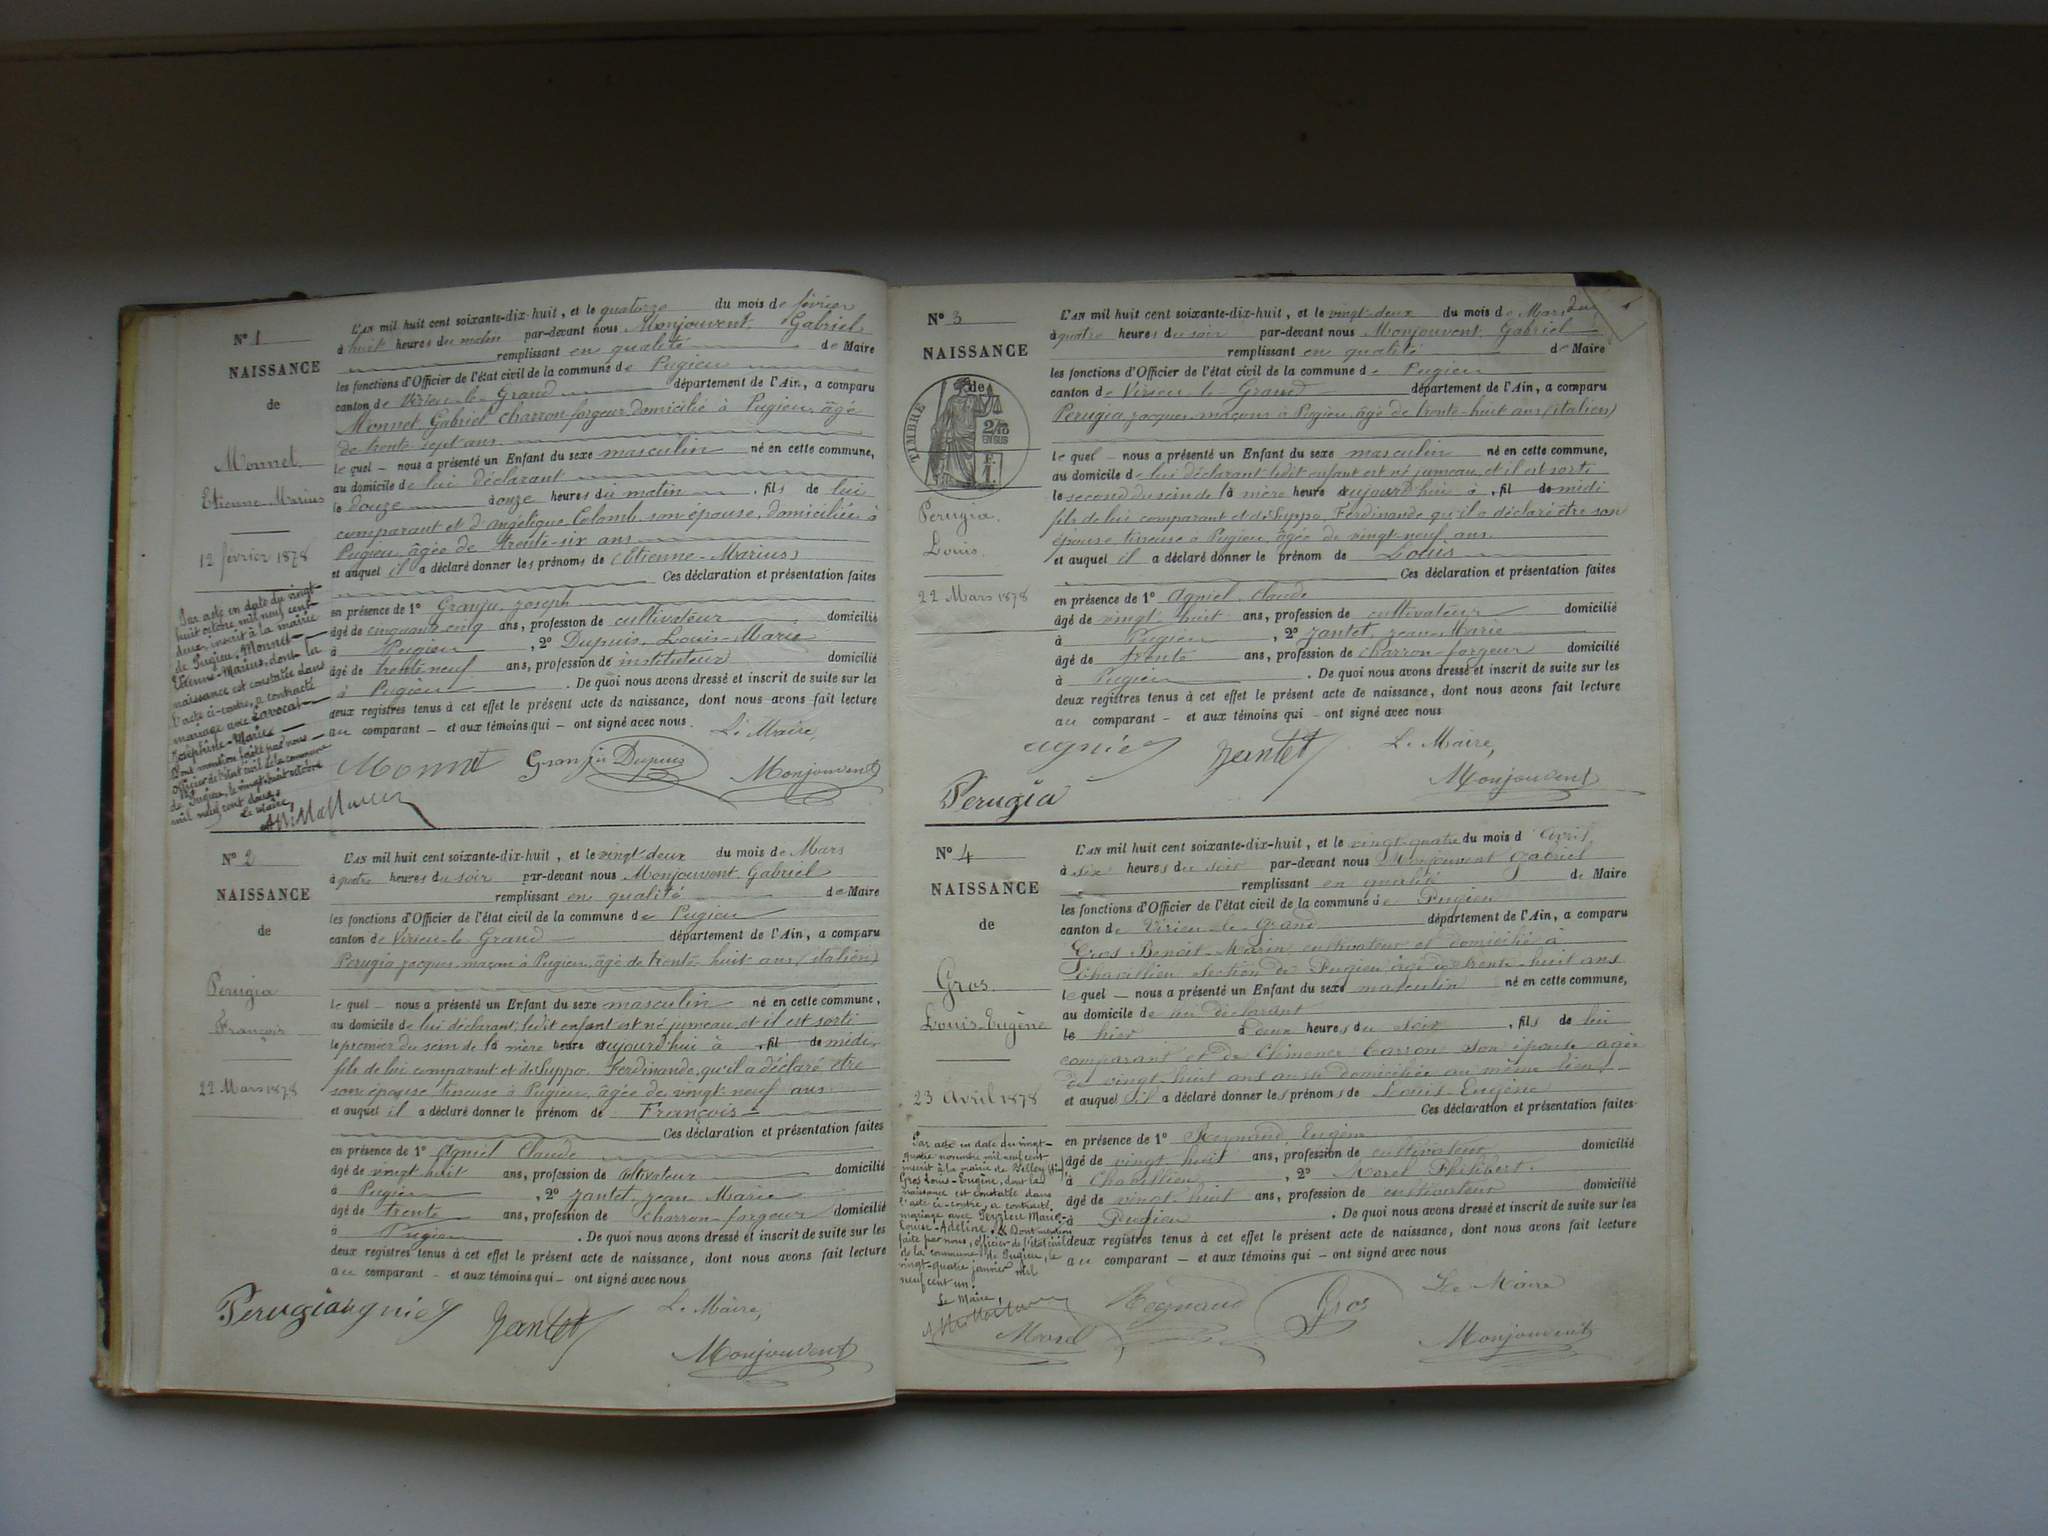 N° 1
NAISSANCE
de
Monnet
Etienne-Marius
12 février 1878
Par acte en date du vingt-
huit octobre mil neuf cent
douze, inscrit à la mairie
de Pugieu, Monnet
Etienne-Marius, dont la
naissance est constatée dans
l'acte ci-contre, a contracté
mariage avec Lavocat
Joséphine-Marie
Dont mention faite par nous
officier de l'état civil de la commune
de Pugieu, le vingt-huit octobre
mil neuf cent douze
Le Maire,
L'AN mil huit cent soixante-dix-huit, et le quatorze du mois de février
à huit heures du matin par-devant nous Monjouvent Gabriel
remplissant en qualité de Maire
les fonctions d'Officier de l'état civil de la commune de Pugieu
canton de Virieu-le-Grand département de l'Ain, a comparu
Monnet Gabriel charron-forgeur domicilié à Pugieu, âgé
de trente-sept ans
lequel — nous a présenté un Enfant du sexe masculin né en cette commune,
au domicile de lui déclarant
le douze à onze heures du matin, fils de lui
comparant et d'Angélique Colomb son épouse, domiciliée à
Pugieu âgée de trente-six ans
et auquel il a déclaré donner les prénoms de Etienne-Marius
Ces déclaration et présentation faites
en présence de 1° Granju Joseph
âgé de cinquante cinq ans, profession de cultivateur domicilié
à Pugieu, 2° Dupuis Louis-Marie
âgé de trente-neuf ans, profession de instituteur domicilié
à Pugieu. De quoi nous avons dressé et inscrit de suite sur les
deux registres tenus à cet effet le présent acte de naissance, dont nous avons fait lecture
au comparant — et aux témoins qui — ont signé avec nous
Le Maire,
Monnet Granju Dupuis Monjouvent
N° 2
NAISSANCE
de
Perugia
François
22 Mars 1878
L'AN mil huit cent soixante-dix-huit, et le vingt-deux du mois de Mars
à quatre heures du soir par-devant nous Monjouvent Gabriel
remplissant en qualité de Maire
les fonctions d'Officier de l'état civil de la commune de Pugieu
canton de Virieu-le-Grand département de l'Ain, a comparu
Perugia jacques maçon à Pugieu, âgé de trente-huit ans (italien)
lequel — nous a présenté un Enfant du sexe masculin né en cette commune,
au domicile de lui déclarant ledit enfant est né jumeau et il est sorti
le premier du sein de la mère heure aujourd'hui à , fil de midi,
fils de lui comparant et de Suppo Ferdinande, qu'il a déclaré être
son épouse tisseuse à Pugieu, âgée de vingt-neuf ans
et auquel il a déclaré donner le prénom de François
Ces déclaration et présentation faites
en présence de 1° Agniel Claude
âgé de vingt huit ans, profession de cultivateur domicilié
à Pugieu, 2° Jantet Jean Marie
âgé de trente ans, profession de charron-forgeur domicilié
à Pugieu. De quoi nous avons dressé et inscrit de suite sur les
deux registres tenus à cet effet le présent acte de naissance, dont nous avons fait lecture
au comparant - et aux témoins qui - ont signé avec nous
Le Maire,
Perugia agniel Jantet
Monjouvent
N° 3
NAISSANCE
de
TIMBRE
2/10
EN SUS
Perugia
Louis
22 Mars 1878
L'AN mil huit cent soixante-dix-huit, et le vingt-deux du mois de Mars
à quatre heures du soir par-devant nous Monjouvent Gabriel
remplissant en qualité de Maire
les fonctions d'Officier de l'état civil de la commune de Pugieu
canton de Virieu-le-Grand département de l'Ain, a comparu
Perugia jacques maçon à Pugieu, âgé de trente-huit ans (italien)
lequel — nous a présenté un Enfant du sexe masculin né en cette commune,
au domicile de lui déclarant ledit enfant est né jumeau et il est sorti
le second du sein de la mère heure aujourd'hui à , fil de midi
fils de lui comparant et de Suppo Ferdinande qu'il a déclaré être son
épouse tisseuse à Pugieu, âgée de vingt-neuf ans
et auquel il a déclaré donner le prénom de Louis
Ces déclaration et présentation faites
en présence de 1° Agniel Claude
âgé de vingt huit ans, profession de cultivateur domicilié
à Pugieu, 2° Jantet Jean-Marie
âgé de trente ans, profession de charron-forgeur domicilié
à Pugieu. De quoi nous avons dressé et inscrit de suite sur les
deux registres tenus à cet effet le présent acte de naissance, dont nous avons fait lecture
au comparant - et aux témoins qui - ont signé avec nous
agniel Jantet Le Maire,
Perugia Monjouvent
N° 4
NAISSANCE
de
Gros
Louis Eugène
23 Avril 1878
Par acte en date du vingt-
quatre novembre mil neuf cent
inscrit à la mairie de Belley (Ain)
Gros Louis-Eugène, dont la
naissance est constatée dans
l'acte ci-contre, a contracté
mariage avec Marie-
Louise-Adeline. Dont mention
faite par nous, officier de l'état civil
de la commune de Pugieu, le
vingt-quatre janvier mil
neuf cent un.
Le Maire,
L'AN mil huit cent soixante-dix-huit, et le vingt-quatre du mois d'Avril
à six heures du soir par-devant nous Monjouvent Gabriel
remplissant en qualité de Maire
les fonctions d'Officier de l'état civil de la commune de Pugieu
canton de Virieu-le-Grand département de l'Ain, a comparu
Gros Benoit Marin cultivateur et domicilié à
Chavillieu section de Pugieu âgé de trente-huit ans
lequel — nous a présenté un Enfant du sexe masculin né en cette commune,
au domicile de lui déclarant
le hier à deux heures du soir, fils de lui
comparant et de Clémence Carron son épouse âgée
de vingt-huit ans aussi domiciliée au même lieu
et auquel il a déclaré donner les prénoms de Louis-Eugène
Ces déclaration et présentation faites
en présence de 1° Reynaud Eugène
âgé de vingt huit ans, profession de cultivateur domicilié
à Chavillieu, 2° Morel Philibert
âgé de vingt huit ans, profession de cultivateur domicilié
à Pugieu. De quoi nous avons dressé et inscrit de suite sur les
deux registres tenus à cet effet le présent acte de naissance, dont nous avons fait lecture
au comparant — et aux témoins qui — ont signé avec nous
Le Maire
Morel Reynaud Gros
Monjouvent